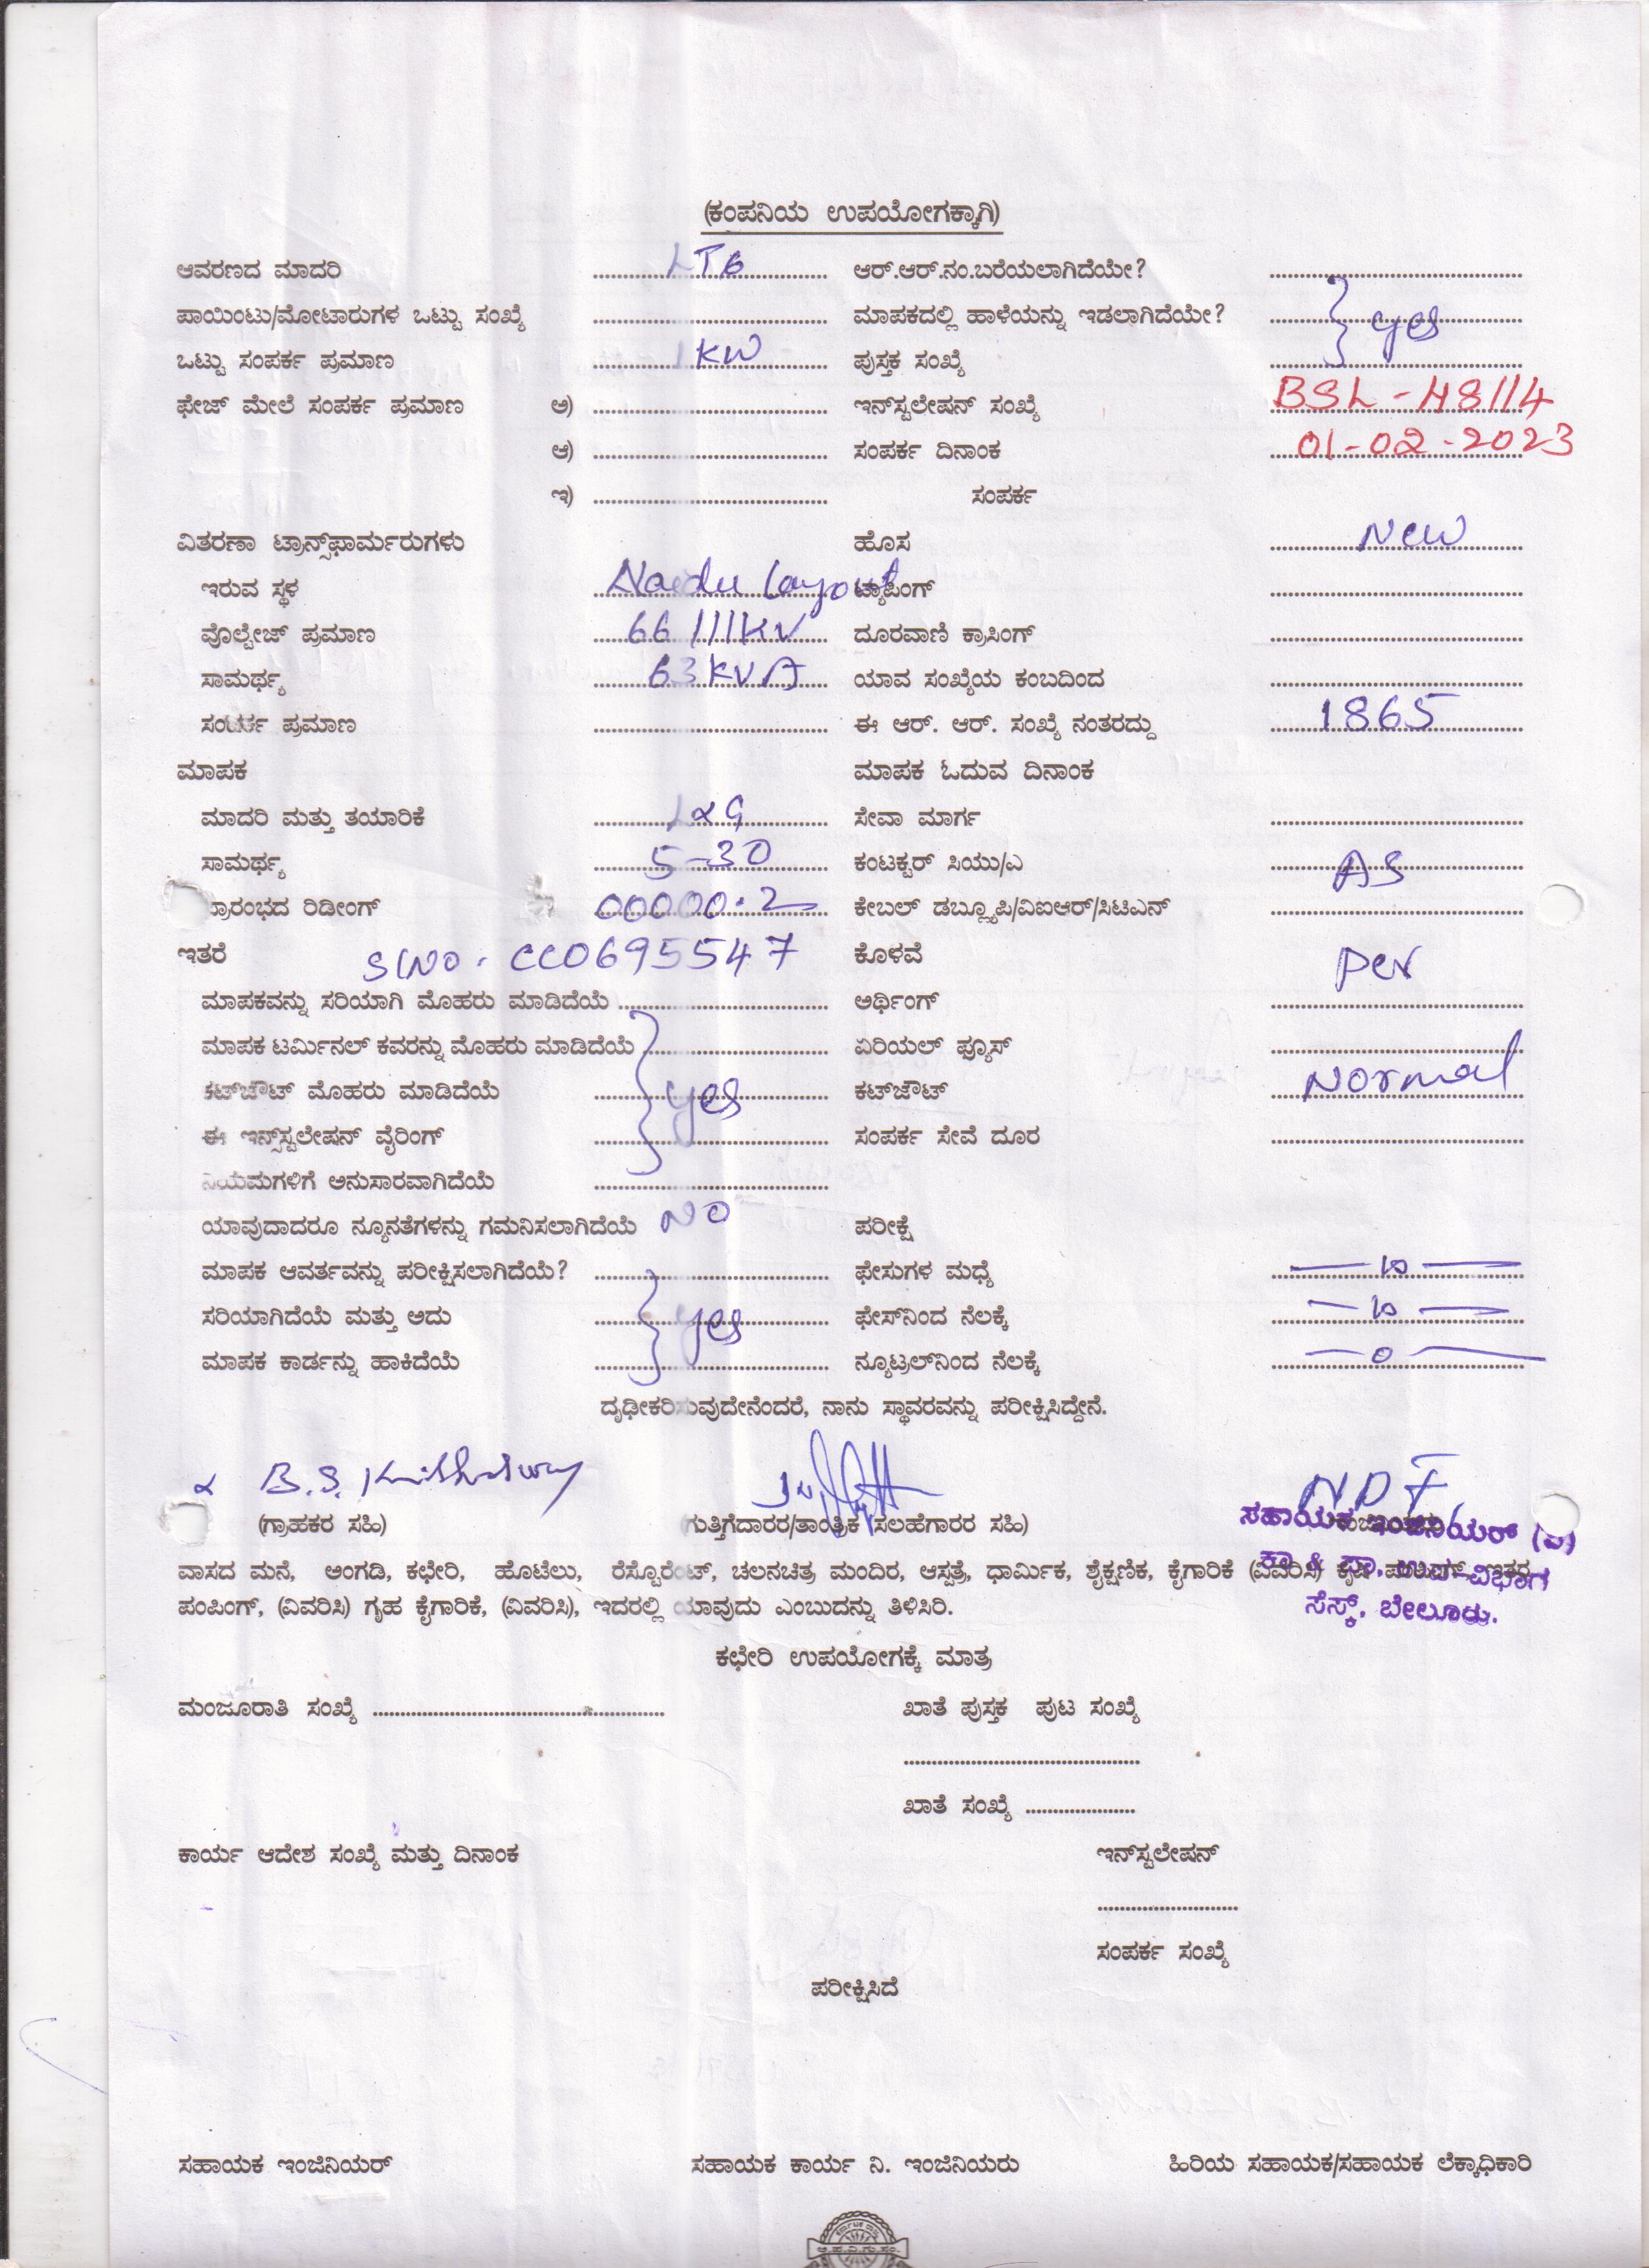 (ಕಂಪನಿಯ ಉಪಯೋಗಕ್ಕಾಗಿ)
ಆವರಣದ ಮಾದರಿ LT6 ಆರ್.ಆರ್.ನಂ.ಬರೆಯಲಾಗಿದೆಯೇ?
ಪಾಯಿಂಟು/ಮೋಟಾರುಗಳ ಒಟ್ಟು ಸಂಖ್ಯೆ ಮಾಪಕದಲ್ಲಿ ಹಾಳೆಯನ್ನು ಇಡಲಾಗಿದೆಯೇ? yes
ಒಟ್ಟು ಸಂಪರ್ಕ ಪ್ರಮಾಣ 1KW ಪುಸ್ತಕ ಸಂಖ್ಯೆ
ಫೇಜ್ ಮೇಲೆ ಸಂಪರ್ಕ ಪ್ರಮಾಣ ಅ) ಇನ್‌ಸ್ಟಲೇಷನ್ ಸಂಖ್ಯೆ BSL-48114
ಆ) ಸಂಪರ್ಕ ದಿನಾಂಕ 01-02-2023
ಇ) ಸಂಪರ್ಕ
ವಿತರಣಾ ಟ್ರಾನ್ಸ್‌ಫಾರ್ಮರುಗಳು ಹೊಸ New
ಇರುವ ಸ್ಥಳ Naidu Layout ಟ್ಯಾಪಿಂಗ್
ವೊಲ್ಟೇಜ್ ಪ್ರಮಾಣ 66/11KV ದೂರವಾಣಿ ಕ್ರಾಸಿಂಗ್
ಸಾಮರ್ಥ್ಯ 63KVA ಯಾವ ಸಂಖ್ಯೆಯ ಕಂಬದಿಂದ
ಸಂಪರ್ಕ ಪ್ರಮಾಣ ಈ ಆರ್. ಆರ್. ಸಂಖ್ಯೆ ನಂತರದ್ದು 1865
ಮಾಪಕ ಮಾಪಕ ಓದುವ ದಿನಾಂಕ
ಮಾದರಿ ಮತ್ತು ತಯಾರಿಕೆ L&G ಸೇವಾ ಮಾರ್ಗ
ಸಾಮರ್ಥ್ಯ 5-30 ಕಂಟಕ್ಟರ್ ಸಿಯು/ಎ AS
ಪ್ರಾರಂಭದ ರಿಡೀಂಗ್ 00000.2 ಕೇಬಲ್ ಡಬ್ಲ್ಯೂಪಿ/ವಿಐಆರ್/ಸಿಟಿಎನ್
ಇತರೆ SlNo. CC0695547 ಕೊಳವೆ per
ಮಾಪಕವನ್ನು ಸರಿಯಾಗಿ ಮೊಹರು ಮಾಡಿದೆಯೆ ಅರ್ಥಿಂಗ್
ಮಾಪಕ ಟರ್ಮಿನಲ್ ಕವರನ್ನು ಮೊಹರು ಮಾಡಿದೆಯೆ ಏರಿಯಲ್ ಫ್ಯೂಸ್
ಕಟ್‌ಔಟ್ ಮೊಹರು ಮಾಡಿದೆಯೆ yes ಕಟ್‌ಔಟ್ Normal
ಈ ಇನ್‌ಸ್ಟಲೇಷನ್ ವೈರಿಂಗ್ ಸಂಪರ್ಕ ಸೇವೆ ದೂರ
ನಿಯಮಗಳಿಗೆ ಅನುಸಾರವಾಗಿದೆಯೆ
ಯಾವುದಾದರೂ ನ್ಯೂನತೆಗಳನ್ನು ಗಮನಿಸಲಾಗಿದೆಯೆ NO ಪರೀಕ್ಷೆ
ಮಾಪಕ ಆವರ್ತವನ್ನು ಪರೀಕ್ಷಿಸಲಾಗಿದೆಯೆ? ಫೇಸುಗಳ ಮಧ್ಯೆ
ಸರಿಯಾಗಿದೆಯೆ ಮತ್ತು ಅದು yes ಫೇಸ್‌ನಿಂದ ನೆಲಕ್ಕೆ
ಮಾಪಕ ಕಾರ್ಡನ್ನು ಹಾಕಿದೆಯೆ ನ್ಯೂಟ್ರಲ್‌ನಿಂದ ನೆಲಕ್ಕೆ —0—
ದೃಢೀಕರಿಸುವುದೇನೆಂದರೆ, ನಾನು ಸ್ಥಾವರವನ್ನು ಪರೀಕ್ಷಿಸಿದ್ದೇನೆ.
(ಗ್ರಾಹಕರ ಸಹಿ) (ಗುತ್ತಿಗೆದಾರರ/ತಾಂತ್ರಿಕ ಸಲಹೆಗಾರರ ಸಹಿ)
ಸಹಾಯಕ ಇಂಜಿನಿಯರ್ (ವಿ)
ವಾಸದ ಮನೆ, ಅಂಗಡಿ, ಕಛೇರಿ, ಹೊಟೆಲು, ರೆಸ್ಟೊರೆಂಟ್, ಚಲನಚಿತ್ರ ಮಂದಿರ, ಆಸ್ಪತ್ರೆ, ಧಾರ್ಮಿಕ, ಶೈಕ್ಷಣಿಕ, ಕೈಗಾರಿಕೆ (ವಿವರಿಸಿ) ಕೃಷಿ ಪಂಪಿಂಗ್, ಇತರ
ಕಾ & ಪಾ. ಉಪ-ವಿಭಾಗ
ಪಂಪಿಂಗ್, (ವಿವರಿಸಿ) ಗೃಹ ಕೈಗಾರಿಕೆ, (ವಿವರಿಸಿ), ಇದರಲ್ಲಿ ಯಾವುದು ಎಂಬುದನ್ನು ತಿಳಿಸಿರಿ.
ಸೆಸ್ಕ್, ಬೇಲೂರು.
ಕಛೇರಿ ಉಪಯೋಗಕ್ಕೆ ಮಾತ್ರ
ಮಂಜೂರಾತಿ ಸಂಖ್ಯೆ ಖಾತೆ ಪುಸ್ತಕ ಪುಟ ಸಂಖ್ಯೆ
ಖಾತೆ ಸಂಖ್ಯೆ
ಕಾರ್ಯ ಆದೇಶ ಸಂಖ್ಯೆ ಮತ್ತು ದಿನಾಂಕ ಇನ್‌ಸ್ಟಲೇಷನ್
ಸಂಪರ್ಕ ಸಂಖ್ಯೆ
ಪರೀಕ್ಷಿಸಿದೆ
ಸಹಾಯಕ ಇಂಜಿನಿಯರ್ ಸಹಾಯಕ ಕಾರ್ಯ ನಿ. ಇಂಜಿನಿಯರು ಹಿರಿಯ ಸಹಾಯಕ/ಸಹಾಯಕ ಲೆಕ್ಕಾಧಿಕಾರಿ